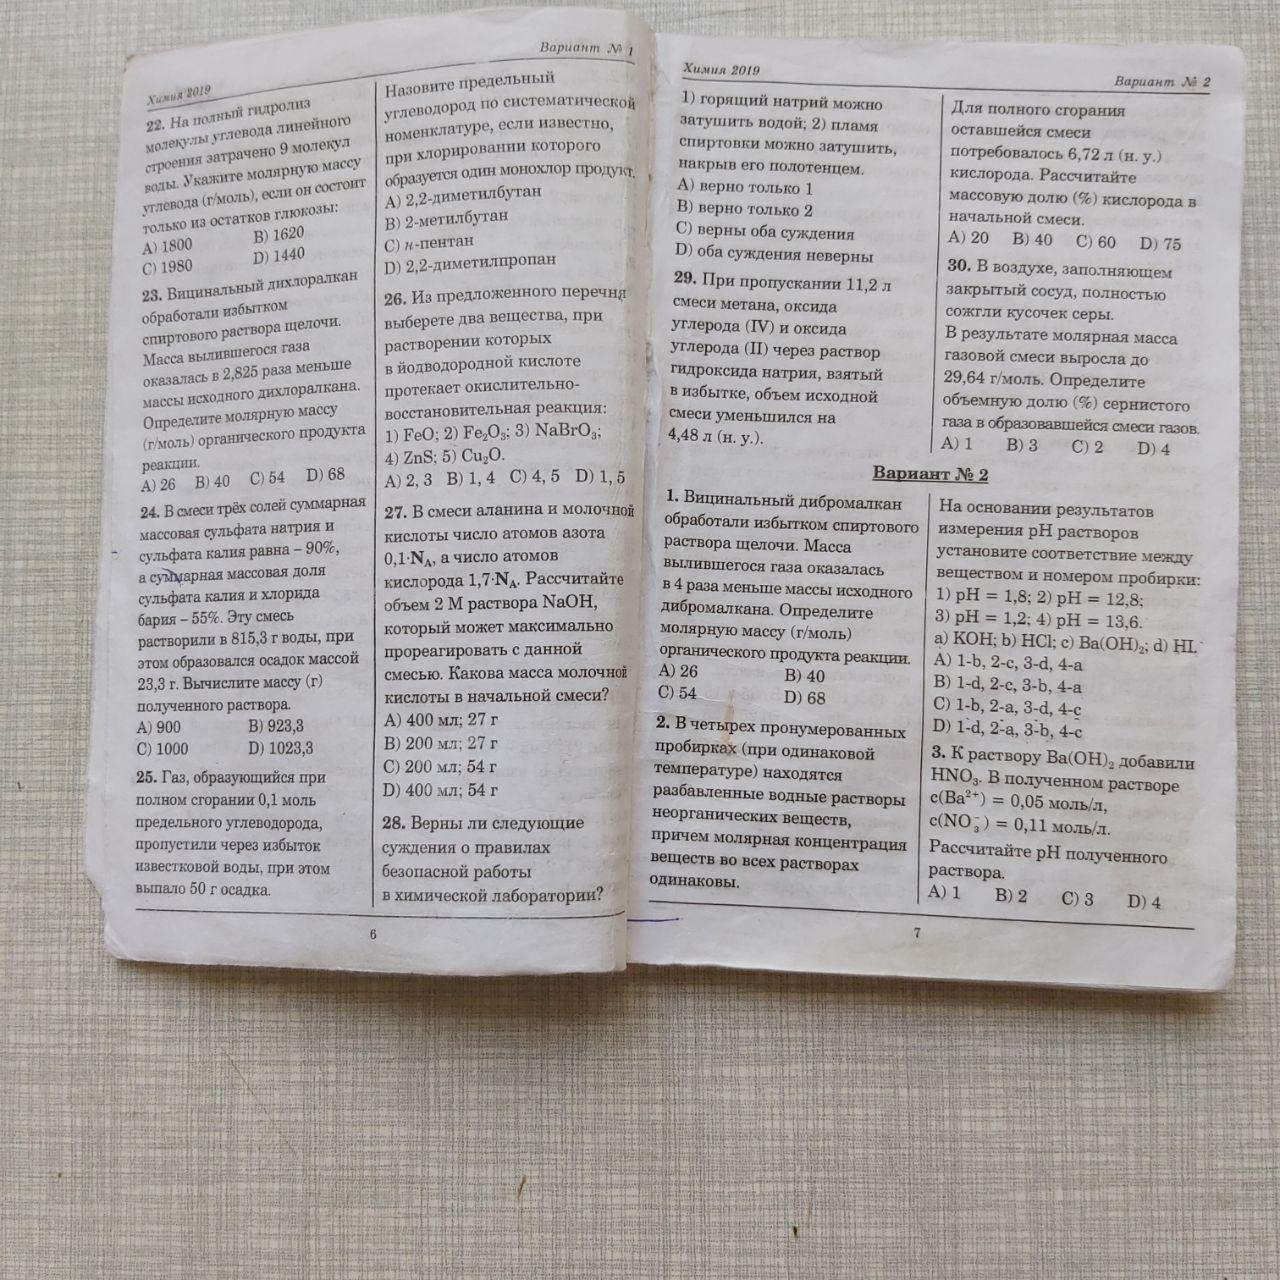 Химия 2019
Вариант № 1
22. На полный гидролиз
молекулы углевода линейного
строения затрачено 9 молекул
воды. Укажите молярную массу
углевода (г/моль), если он состоит
только из остатков глюкозы:
A) 1800 B) 1620
C) 1980 D) 1440
23. Вицинальный дихлоралкан
обработали избытком
спиртового раствора щелочи.
Масса вылившегося газа
оказалась в 2,825 раза меньше
массы исходного дихлоралкана.
Определите молярную массу
(г/моль) органического продукта
реакции.
A) 26 B) 40 C) 54 D) 68
24. В смеси трёх солей суммарная
массовая сульфата натрия и
сульфата калия равна – 90%,
а суммарная массовая доля
сульфата калия и хлорида
бария – 55%. Эту смесь
растворили в 815,3 г воды, при
этом образовался осадок массой
23,3 г. Вычислите массу (г)
полученного раствора.
A) 900 B) 923,3
C) 1000 D) 1023,3
25. Газ, образующийся при
полном сгорании 0,1 моль
предельного углеводорода,
пропустили через избыток
известковой воды, при этом
выпало 50 г осадка.
Назовите предельный
углеводород по систематической
номенклатуре, если известно,
при хлорировании которого
образуется один монохлор продукт.
A) 2,2-диметилбутан
B) 2-метилбутан
C) н-пентан
D) 2,2-диметилпропан
26. Из предложенного перечня
выберете два вещества, при
растворении которых
в йодводородной кислоте
протекает окислительно-
восстановительная реакция:
1) FeO; 2) Fe₂O₃; 3) NaBrO₃;
4) ZnS; 5) Cu₂O.
A) 2, 3 B) 1, 4 C) 4, 5 D) 1, 5
27. В смеси аланина и молочной
кислоты число атомов азота
0,1·N_A, а число атомов
кислорода 1,7·N_A. Рассчитайте
объем 2 М раствора NaOH,
который может максимально
прореагировать с данной
смесью. Какова масса молочной
кислоты в начальной смеси?
A) 400 мл; 27 г
B) 200 мл; 27 г
C) 200 мл; 54 г
D) 400 мл; 54 г
28. Верны ли следующие
суждения о правилах
безопасной работы
в химической лаборатории?
6
Химия 2019
Вариант № 2
1) горящий натрий можно
затушить водой; 2) пламя
спиртовки можно затушить,
накрыв его полотенцем.
A) верно только 1
B) верно только 2
C) верны оба суждения
D) оба суждения неверны
29. При пропускании 11,2 л
смеси метана, оксида
углерода (IV) и оксида
углерода (II) через раствор
гидроксида натрия, взятый
в избытке, объем исходной
смеси уменьшился на
4,48 л (н. у.).
Для полного сгорания
оставшейся смеси
потребовалось 6,72 л (н. у.)
кислорода. Рассчитайте
массовую долю (%) кислорода в
начальной смеси.
A) 20 B) 40 C) 60 D) 75
30. В воздухе, заполняющем
закрытый сосуд, полностью
сожгли кусочек серы.
В результате молярная масса
газовой смеси выросла до
29,64 г/моль. Определите
объемную долю (%) сернистого
газа в образовавшейся смеси газов.
A) 1 B) 3 C) 2 D) 4
Вариант № 2
1. Вицинальный дибромалкан
обработали избытком спиртового
раствора щелочи. Масса
вылившегося газа оказалась
в 4 раза меньше массы исходного
дибромалкана. Определите
молярную массу (г/моль)
органического продукта реакции.
A) 26 B) 40
C) 54 D) 68
2. В четырех пронумерованных
пробирках (при одинаковой
температуре) находятся
разбавленные водные растворы
неорганических веществ,
причем молярная концентрация
веществ во всех растворах
одинаковы.
На основании результатов
измерения pH растворов
установите соответствие между
веществом и номером пробирки:
1) pH = 1,8; 2) pH = 12,8;
3) pH = 1,2; 4) pH = 13,6.
a) KOH; b) HCl; c) Ba(OH)₂; d) HI.
A) 1-b, 2-c, 3-d, 4-a
B) 1-d, 2-c, 3-b, 4-a
C) 1-b, 2-a, 3-d, 4-c
D) 1-d, 2-a, 3-b, 4-c
3. К раствору Ba(OH)₂ добавили
HNO₃. В полученном растворе
c(Ba²⁺) = 0,05 моль/л,
c(NO₃⁻) = 0,11 моль/л.
Рассчитайте pH полученного
раствора.
A) 1 B) 2 C) 3 D) 4
7